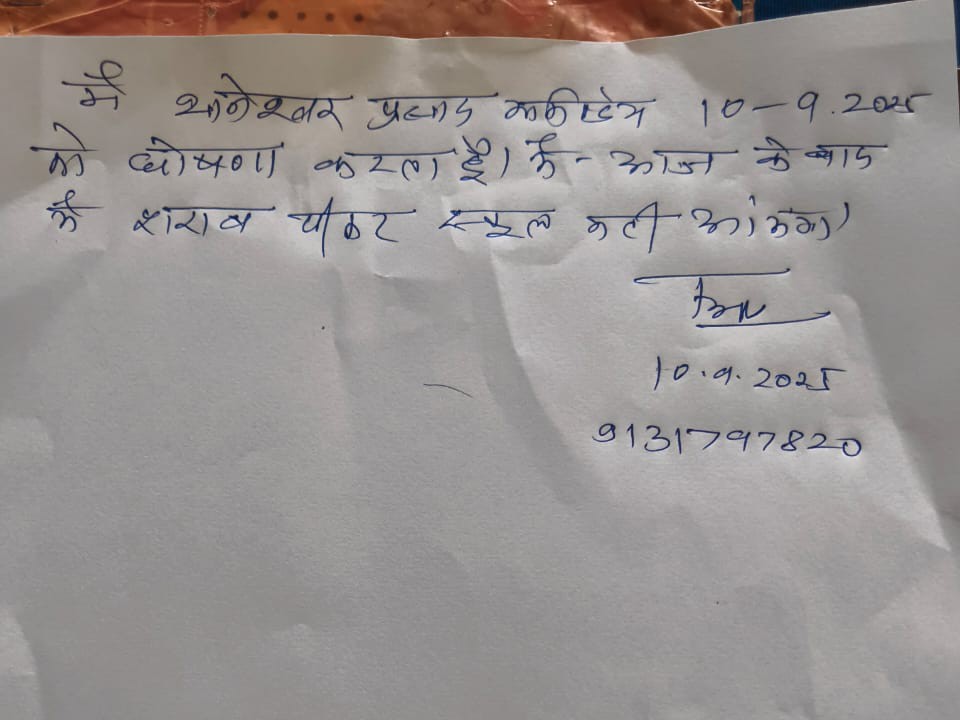 मैं थानेश्वर प्रसाद 10-9.2025
को घोषणा करता है। मैं - आज के बाद
मैं शराब पीकर स्कूल नही आंऊगा।
10.9.2025
9131797820